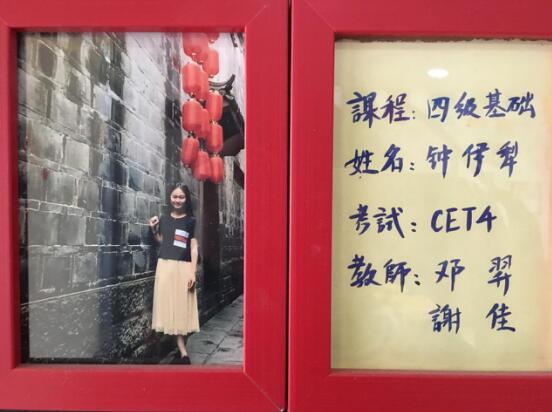 課程: 四级基础
姓名: 钟伊犁
考試: CET4
教師: 邓羿
謝佳